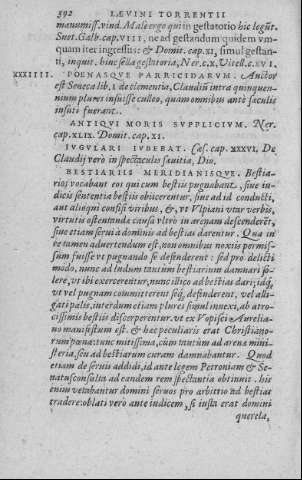 392 LAEVINI TORRENTII
manumiss. vind. Malè ergo qui in gestatorio hic legũt.
Suet. Galb. cap. VIII, ne ad gestandum quidem vm-
quam iter ingressus: & Domit. cap. XI, simul gestan-
ti, inquit. hinc sella gestatoria, Ner. c. X, Vitell. c. XVI.
XXXIIII. POENASQVE PARRICIDARVM. Auctor
est Seneca lib. I de clementia, Claudiũ intra quinquen-
nium plures insuisse culleo, quam omnibus antè saculis
insuti fuerant.
ANTIQVI MORIS SVPPLICIVM. Ner.
cap. XLIX. Domit. cap. XI.
IVGVLARI IVBEBAT. Cæs. cap. XXXVI. De
Claudij verò in spectaculis sæuitia, Dio.
BESTIARIIS MERIDIANISQVE. Bestia-
rios vocabant eos qui cum bestiis pugnabant, siue iu-
dicis sententia bestiis obiicerentur, siue ad id conducti,
aut aliàs confisi viribus, &, vt Vlpiani vtar verbis,
virtutis ostentandæ causa vltrò in arenam descenderẽt,
siue etiam serui à dominis ad bestias darentur. Qua in
re tamen aduertendum est, non omnibus noxiis permis-
sum fuisse vt pugnando se defenderent: sed pro delicti
modo, nunc ad ludum tantùm bestiarium damnari so-
lere, vt ibi exercerentur, nunc illico ad bestias dari; idq́,
vt vel pugnam committerent seq́, defenderent, vel alli-
gati palis, interdum etiam plures simul innexi, ab atro-
cissimis bestiis discerperentur. vt ex Vopisci Aurelia-
no manifestum est. & hæc peculiaris erat Christiano-
rum pœna: tunc mitissima, cùm tantùm ad arenæ mini-
steria, seu ad bestiarum curam damnabantur. Quod
etiam de seruis addidi, id ante legem Petroniam & Se-
natusconsulta ad eandem rem spectantia obtinuit. his
enim vetabantur domini seruos pro arbitrio ad bestias
tradere: oblati verò ante iudicem, si iusta erat domini
querela,